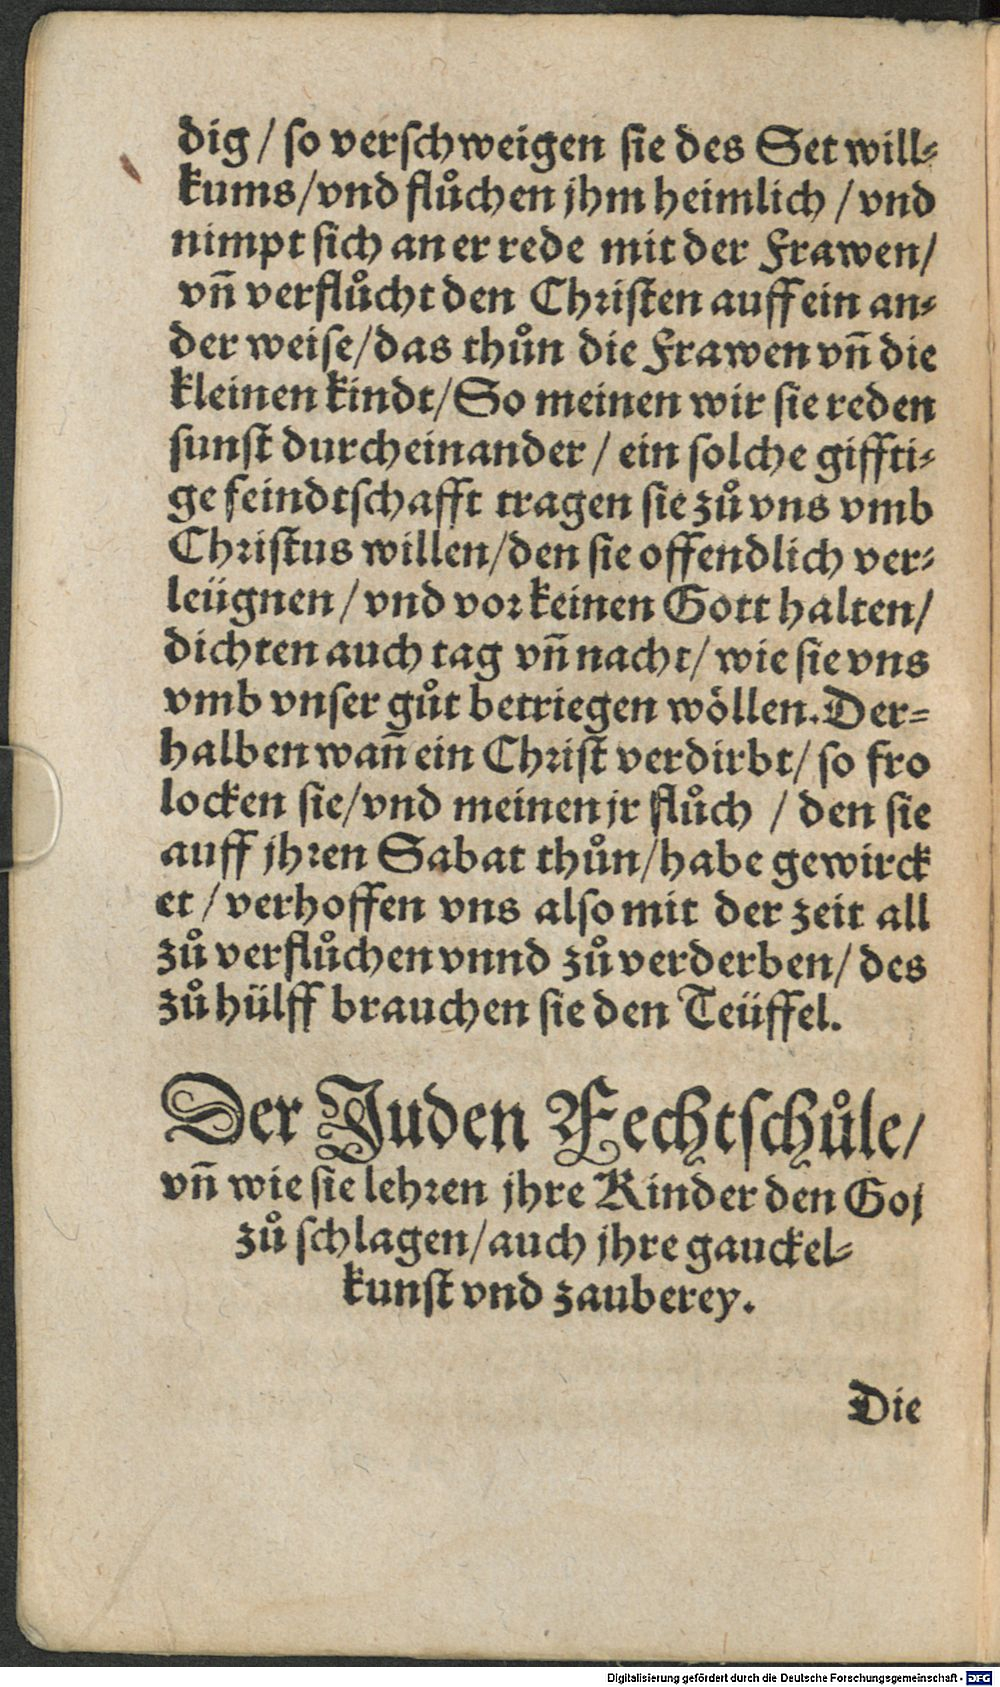 dig / so verschweigen sie des Set will⸗
kums/vnd flůchen jhm heimlich / vnd
nimpt sich an er rede mit der Frawen/
vñ verflůcht den Christen auff ein an⸗
der weise/das thůn die Frawen vñ die
kleinen kindt/So meinen wir sie reden
sunst durcheinander / ein solche giffti⸗
ge feindtschafft tragen sie zů vns vmb
Christus willen/den sie offendlich ver⸗
leügnen / vnd vor keinen Gott halten/
dichten auch tag vñ nacht/ wie sie vns
vmb vnser gůt betriegen wöllen. Der⸗
halben wañ ein Christ verdirbt/ so fro
locken sie/vnd meinen jr flůch / den sie
auff jhren Sabat thůn/habe gewirck
et / verhoffen vns also mit der zeit all
zů verflůchen vnnd zů verderben/ des
zů hülff brauchen sie den Teüffel.
Der Juden Fechtschůle/
vñ wie sie lehren jhre Kinder den Goj
zů schlagen/auch jhre gauckel⸗
kunst vnd zauberey.
Die
Digitalisierung gefördert durch die Deutsche Forschungsgemeinschaft - DFG